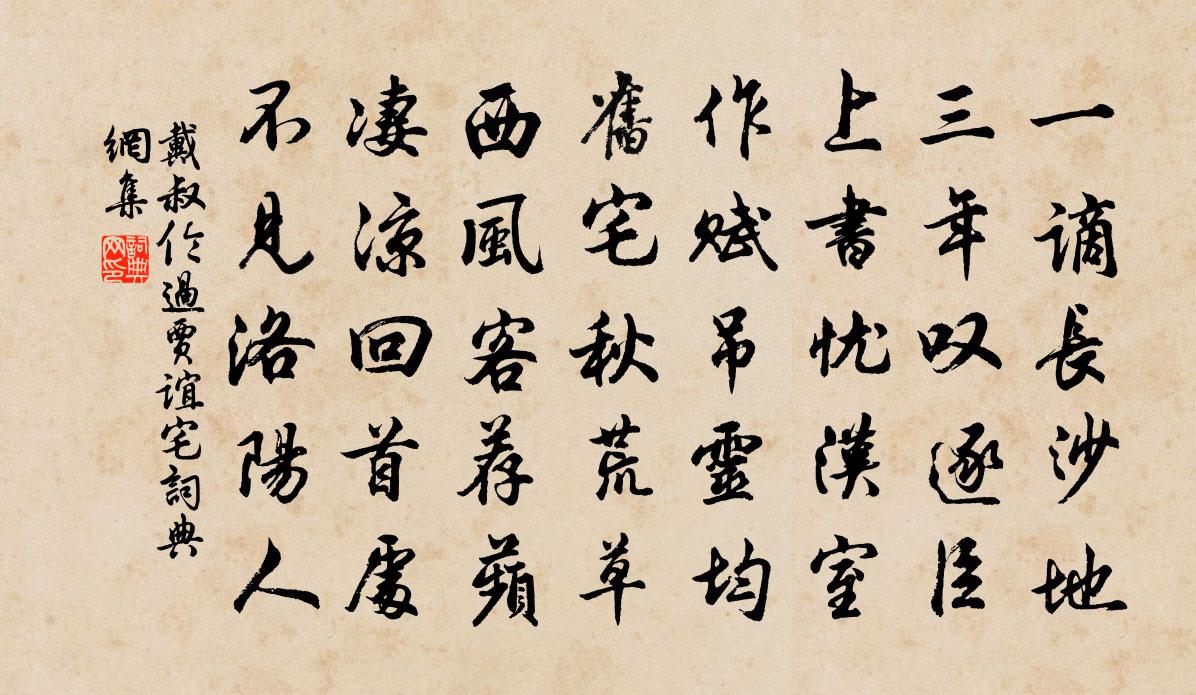 一謫長沙地
三年叹逐臣
上書忧漢室
作賦吊靈均
舊宅秋荒草
西風客荐蘋
凄涼回首處
不見洛陽人
戴叔伦過賈誼宅詞典
網集
詞典网印